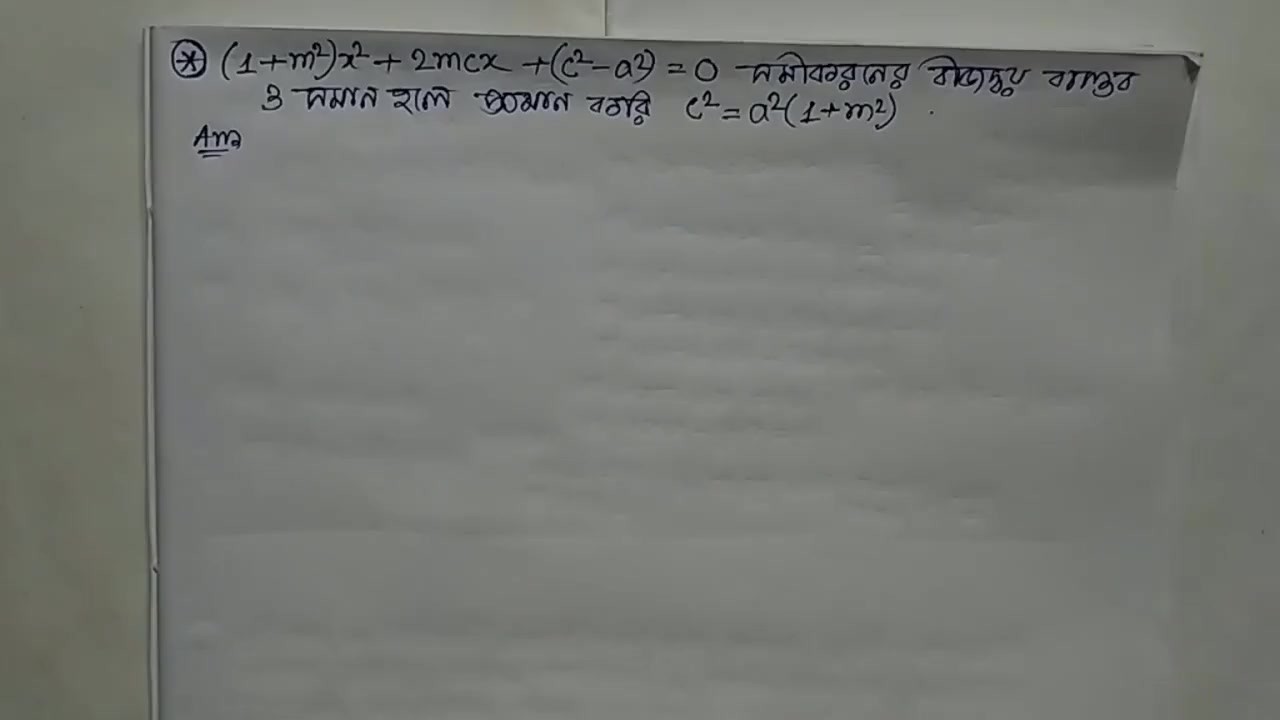 ⊛ (1+m²)x² + 2mcx + (c²-a²) = 0 সমীকরনের বীজদ্বয় বাস্তব
ও সমান হলে প্রমান করি c² = a²(1+m²) .
Ans